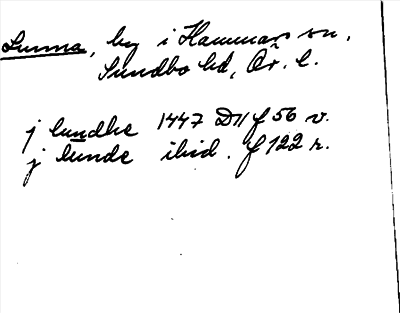 Lunna, by i Hammars sn,
Sundbo hd, Ör. l.
j lundhe 1447 D11 f 56 v.
j lunde ibid. f 122 r.